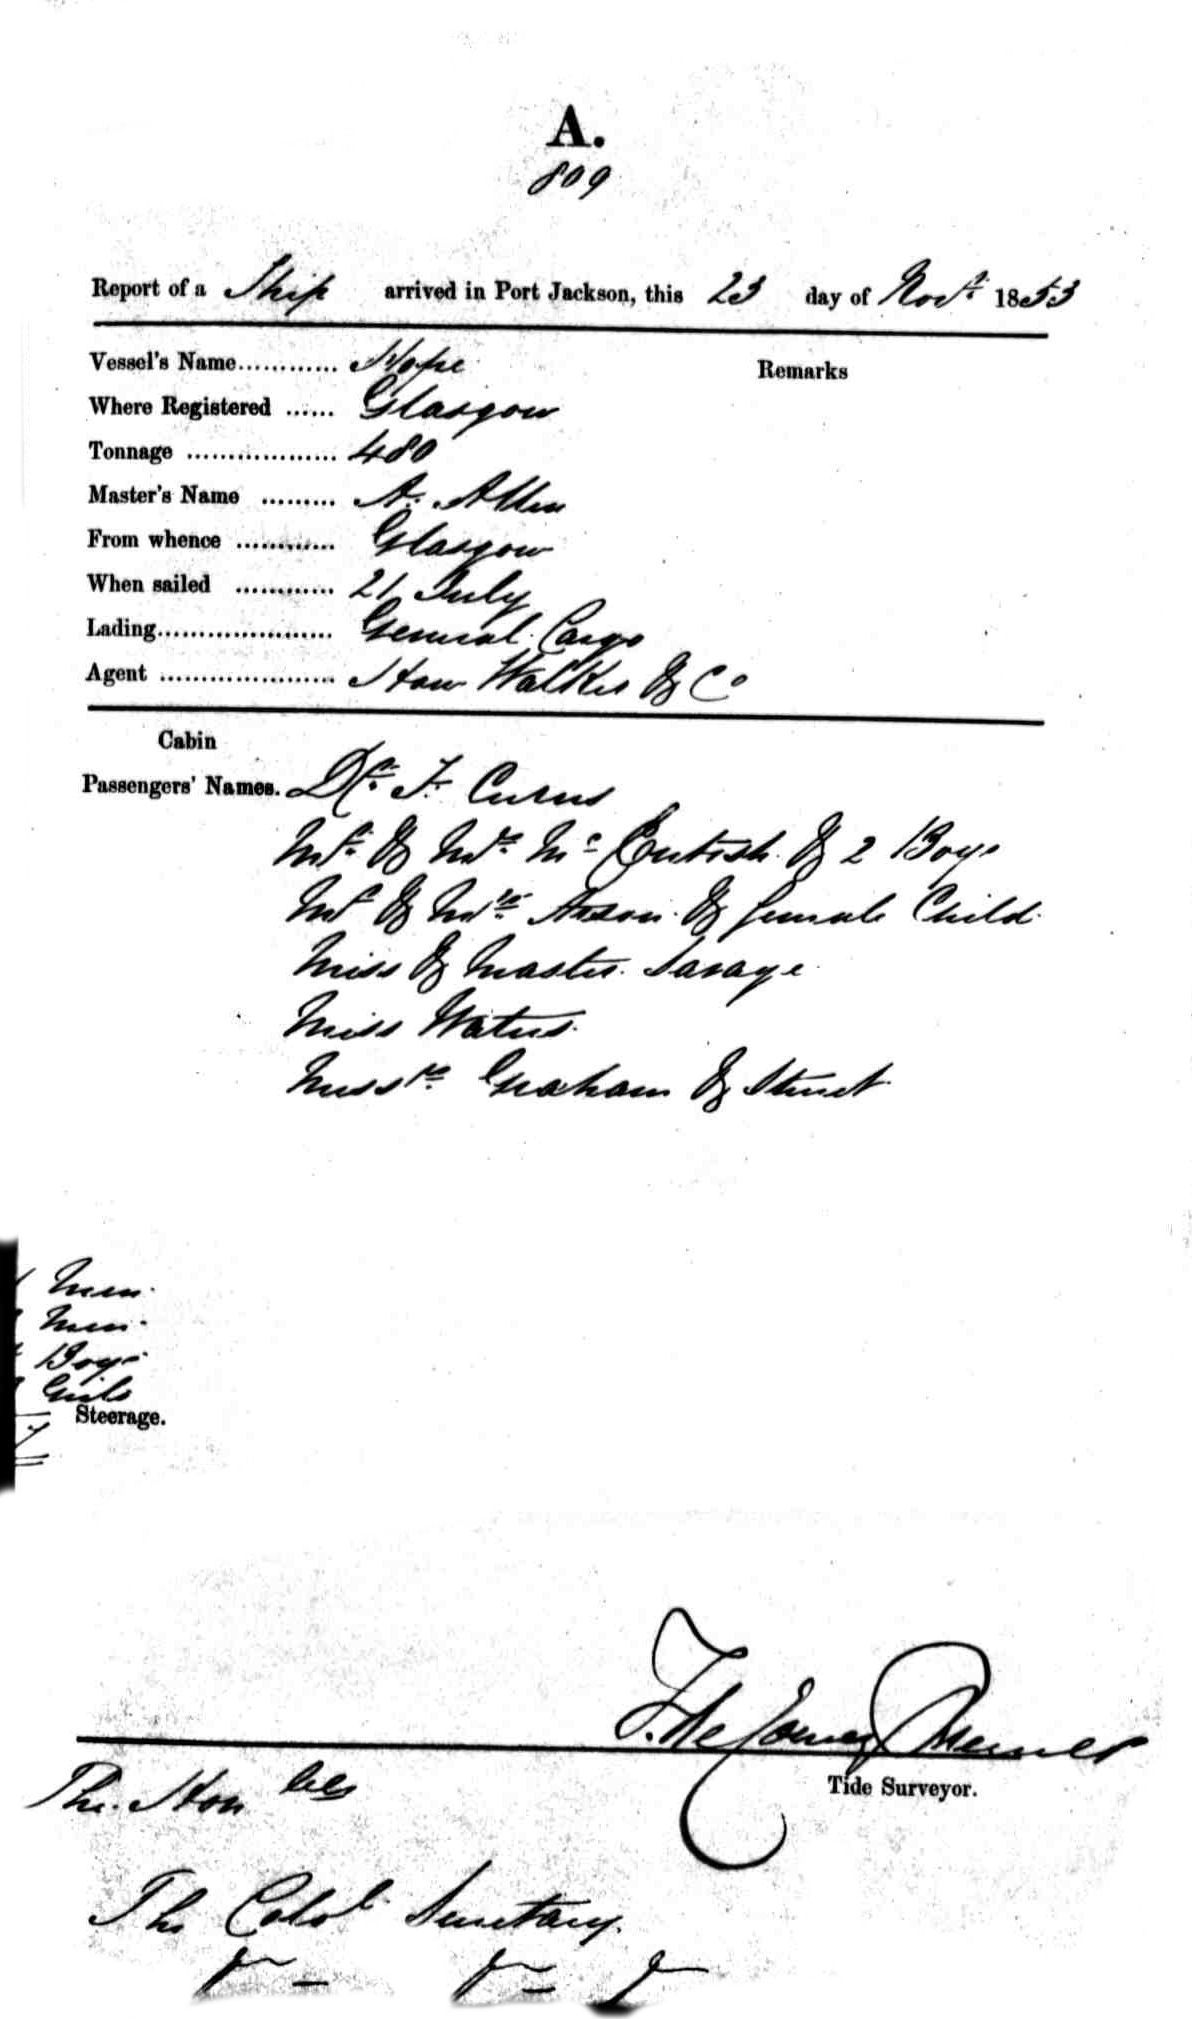 A.
809
Report of a Ship arrived in Port Jackson, this 23 day of Novr. 1853
Vessel's Name............ Hope
Remarks
Where Registered ...... Glasgow
Tonnage .................. 480
Master's Name ......... A. Allen
From whence ............ Glasgow
When sailed ............ 21 July
Lading..................... General Cargo
Agent ..................... How Walker & Co
Cabin
Passengers' Names. Dr. F. Curus
Mr. & Mrs. Mc Entosh & 2 Boys
Mr & Mrs. Anson & female Child
Miss & Master Savage
Miss Waters
Messrs. Graham & Street
Men
Men
Boys
Girls
Steerage.
Tide Surveyor.
The Honble
The Colol Secretary